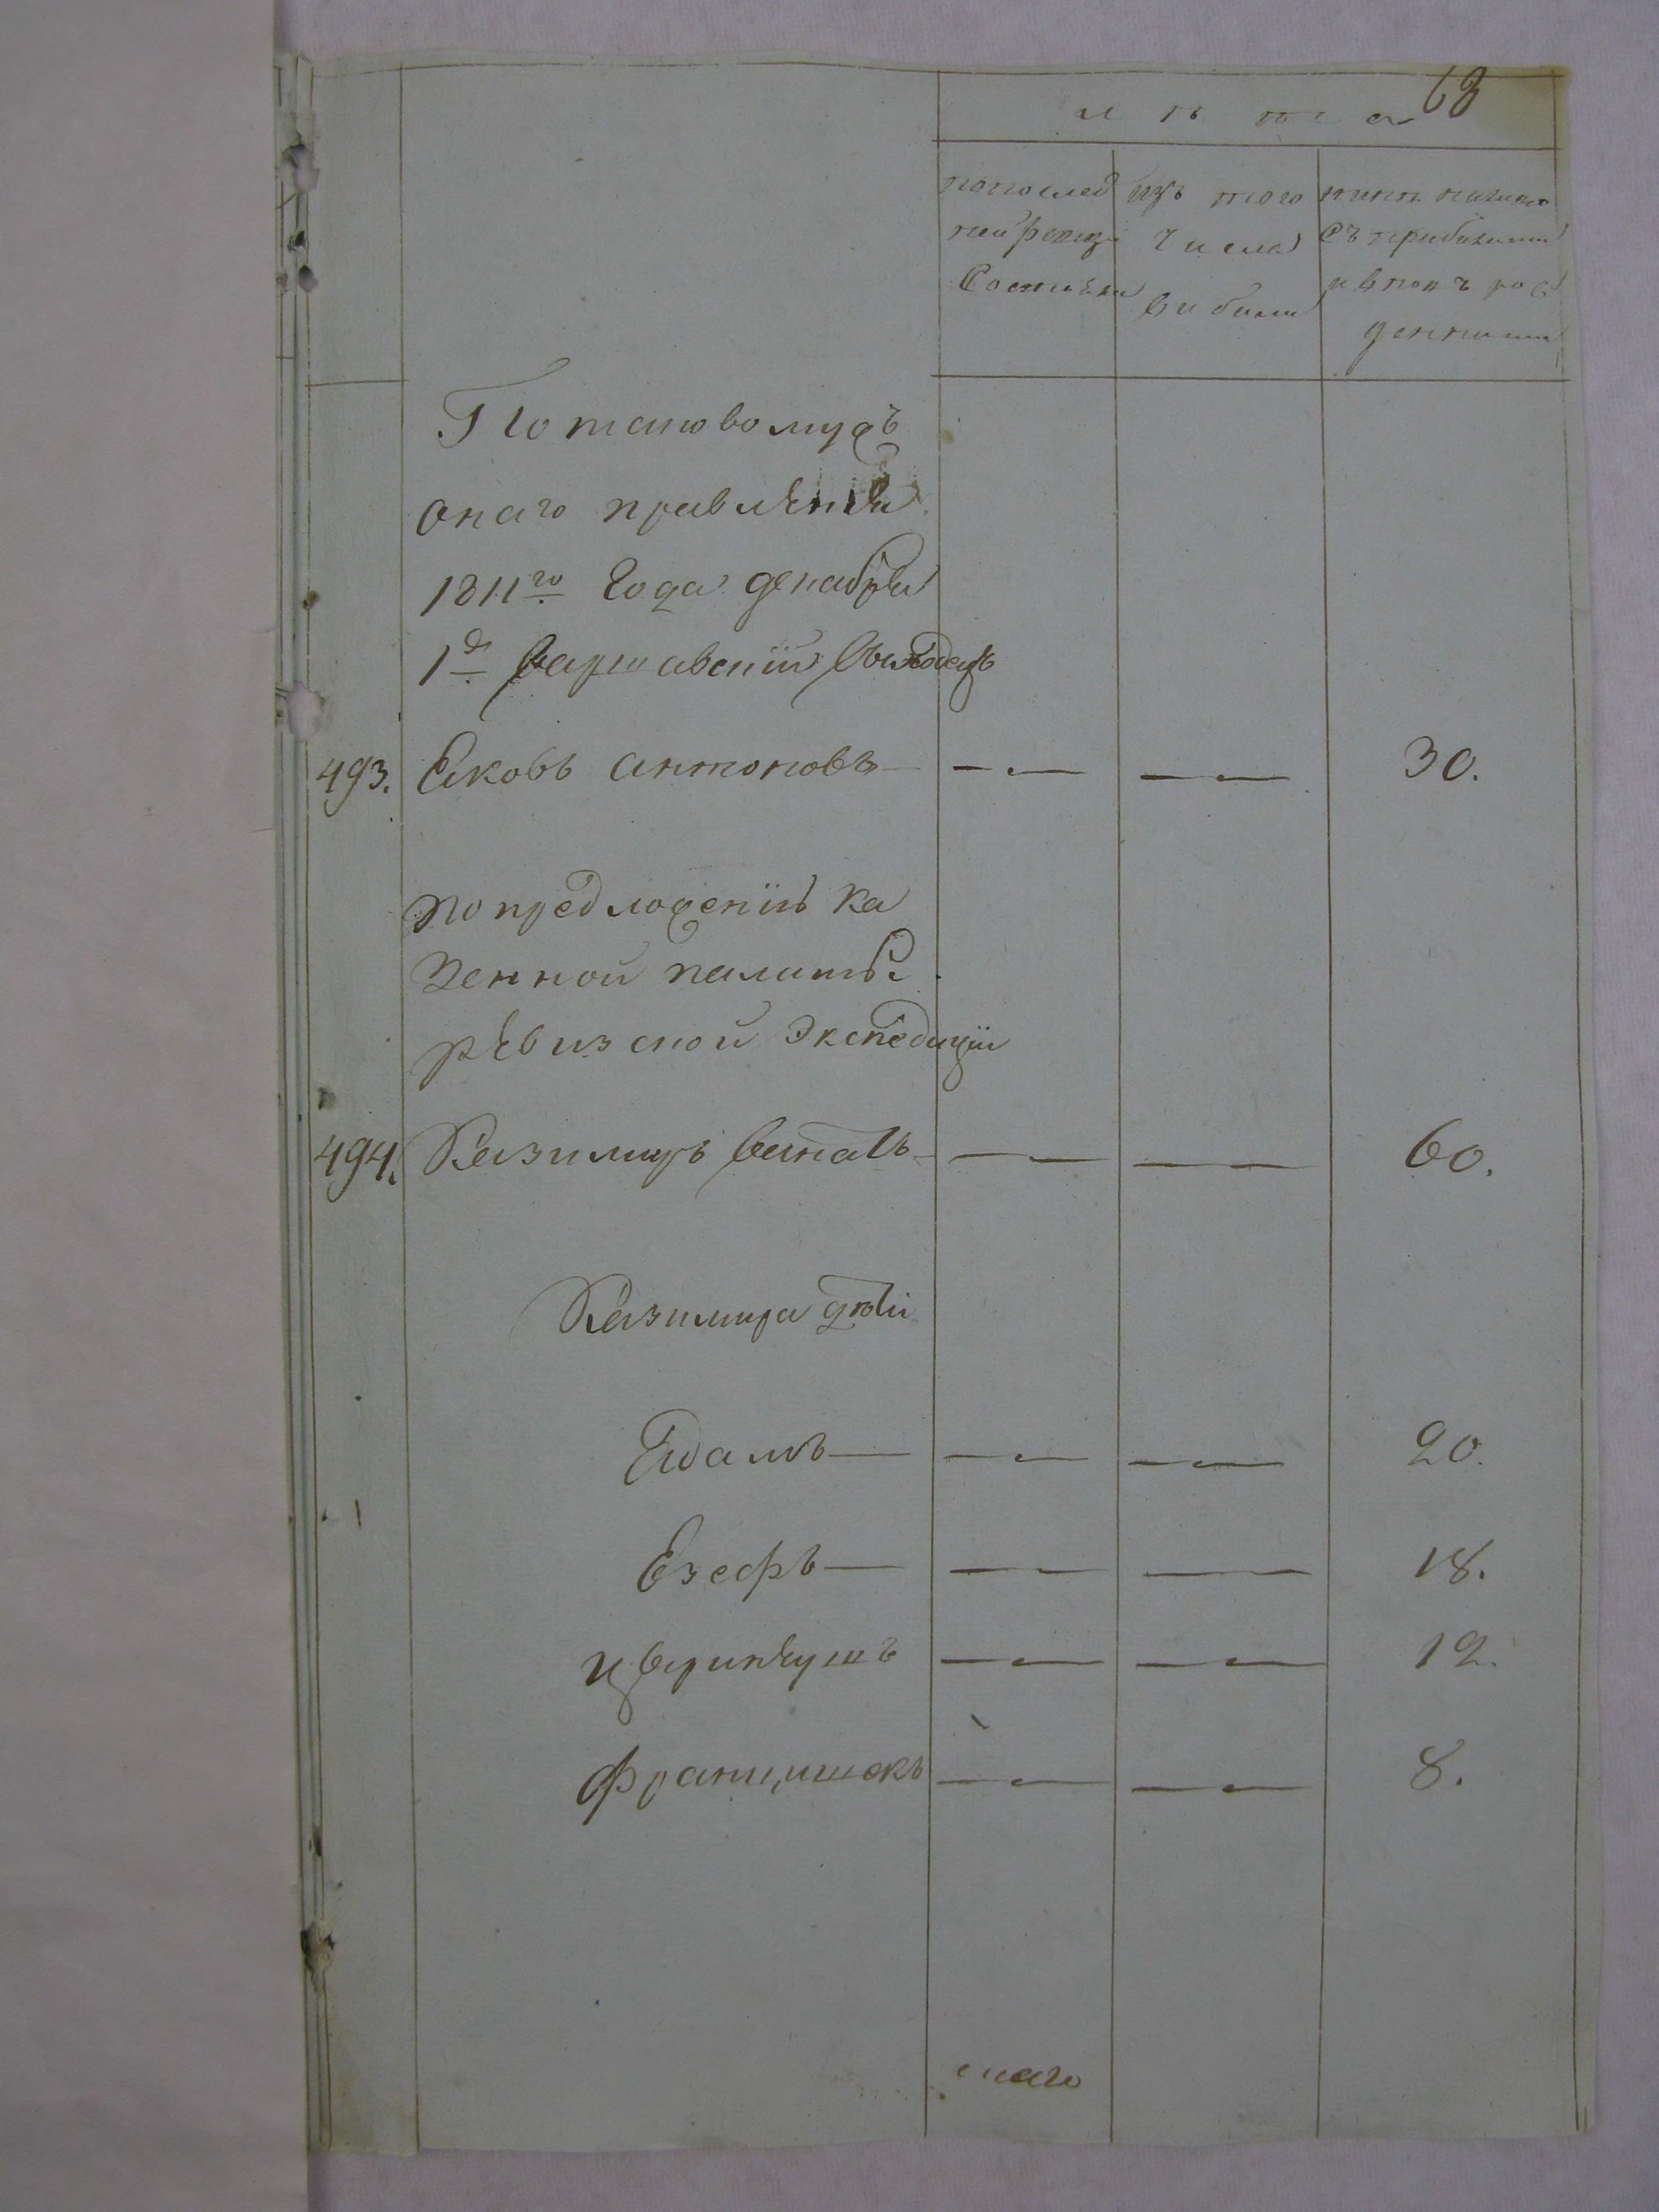 63
лѣта
попослед
ней ревизи
Состояли
изъ того
числа
выбыли
ныне налицо
съ прибылыми
и вновь рож
денными
Потаковомужъ
онаго правленія
1811го Года декабря
1д Варшавскій выходецъ
493. Яковъ антоновъ 30.
попредложенію ка
зенной палаты
ревизской экспедиціи
494. Казимиръ 60.
Казимира дѣти
Адамъ 20.
Езефъ 18.
12.
францишекъ 8.